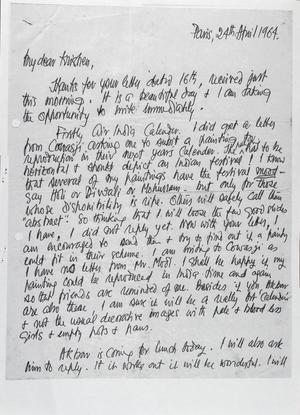 Paris, 24th April 1964.
My dear Krishen,
Thanks for your letter dated 16th, recieved just
this morning. It is a beautiful day & I am taking
the opportunity to write immediately.
Firstly Air India Calender. I did get a letter
from Cowasji asking me to submit a painting for
reproduction in their next years Calender. It had to be
horizontal & should depict an Indian festival!! I know
that several of my paintings have the festival mood -
say Holi or Diwali or Mohurram - but only for those
whose disponibility is ripe. Others will safely call them
"abstract". So thinking that I will loose the few good slides
I have, I did not reply yet. Now with your letter, I
am encouraged to send them & try to find out if a painting
could fit in their scheme. I am writing to Cowasji as
I have no letter from Mr. Modi. I shall be happy if my
painting could be reproduced in India time and again
so that friends are reminded of me. Besides if you, Akbar
are also there I am sure it will be a really hot Calender
& not the usual decorative images with pale & blood less
girls & empty pots & pans.
Akbar is coming for lunch today. I will also ask
him to reply. If it works out it will be wonderful. I will